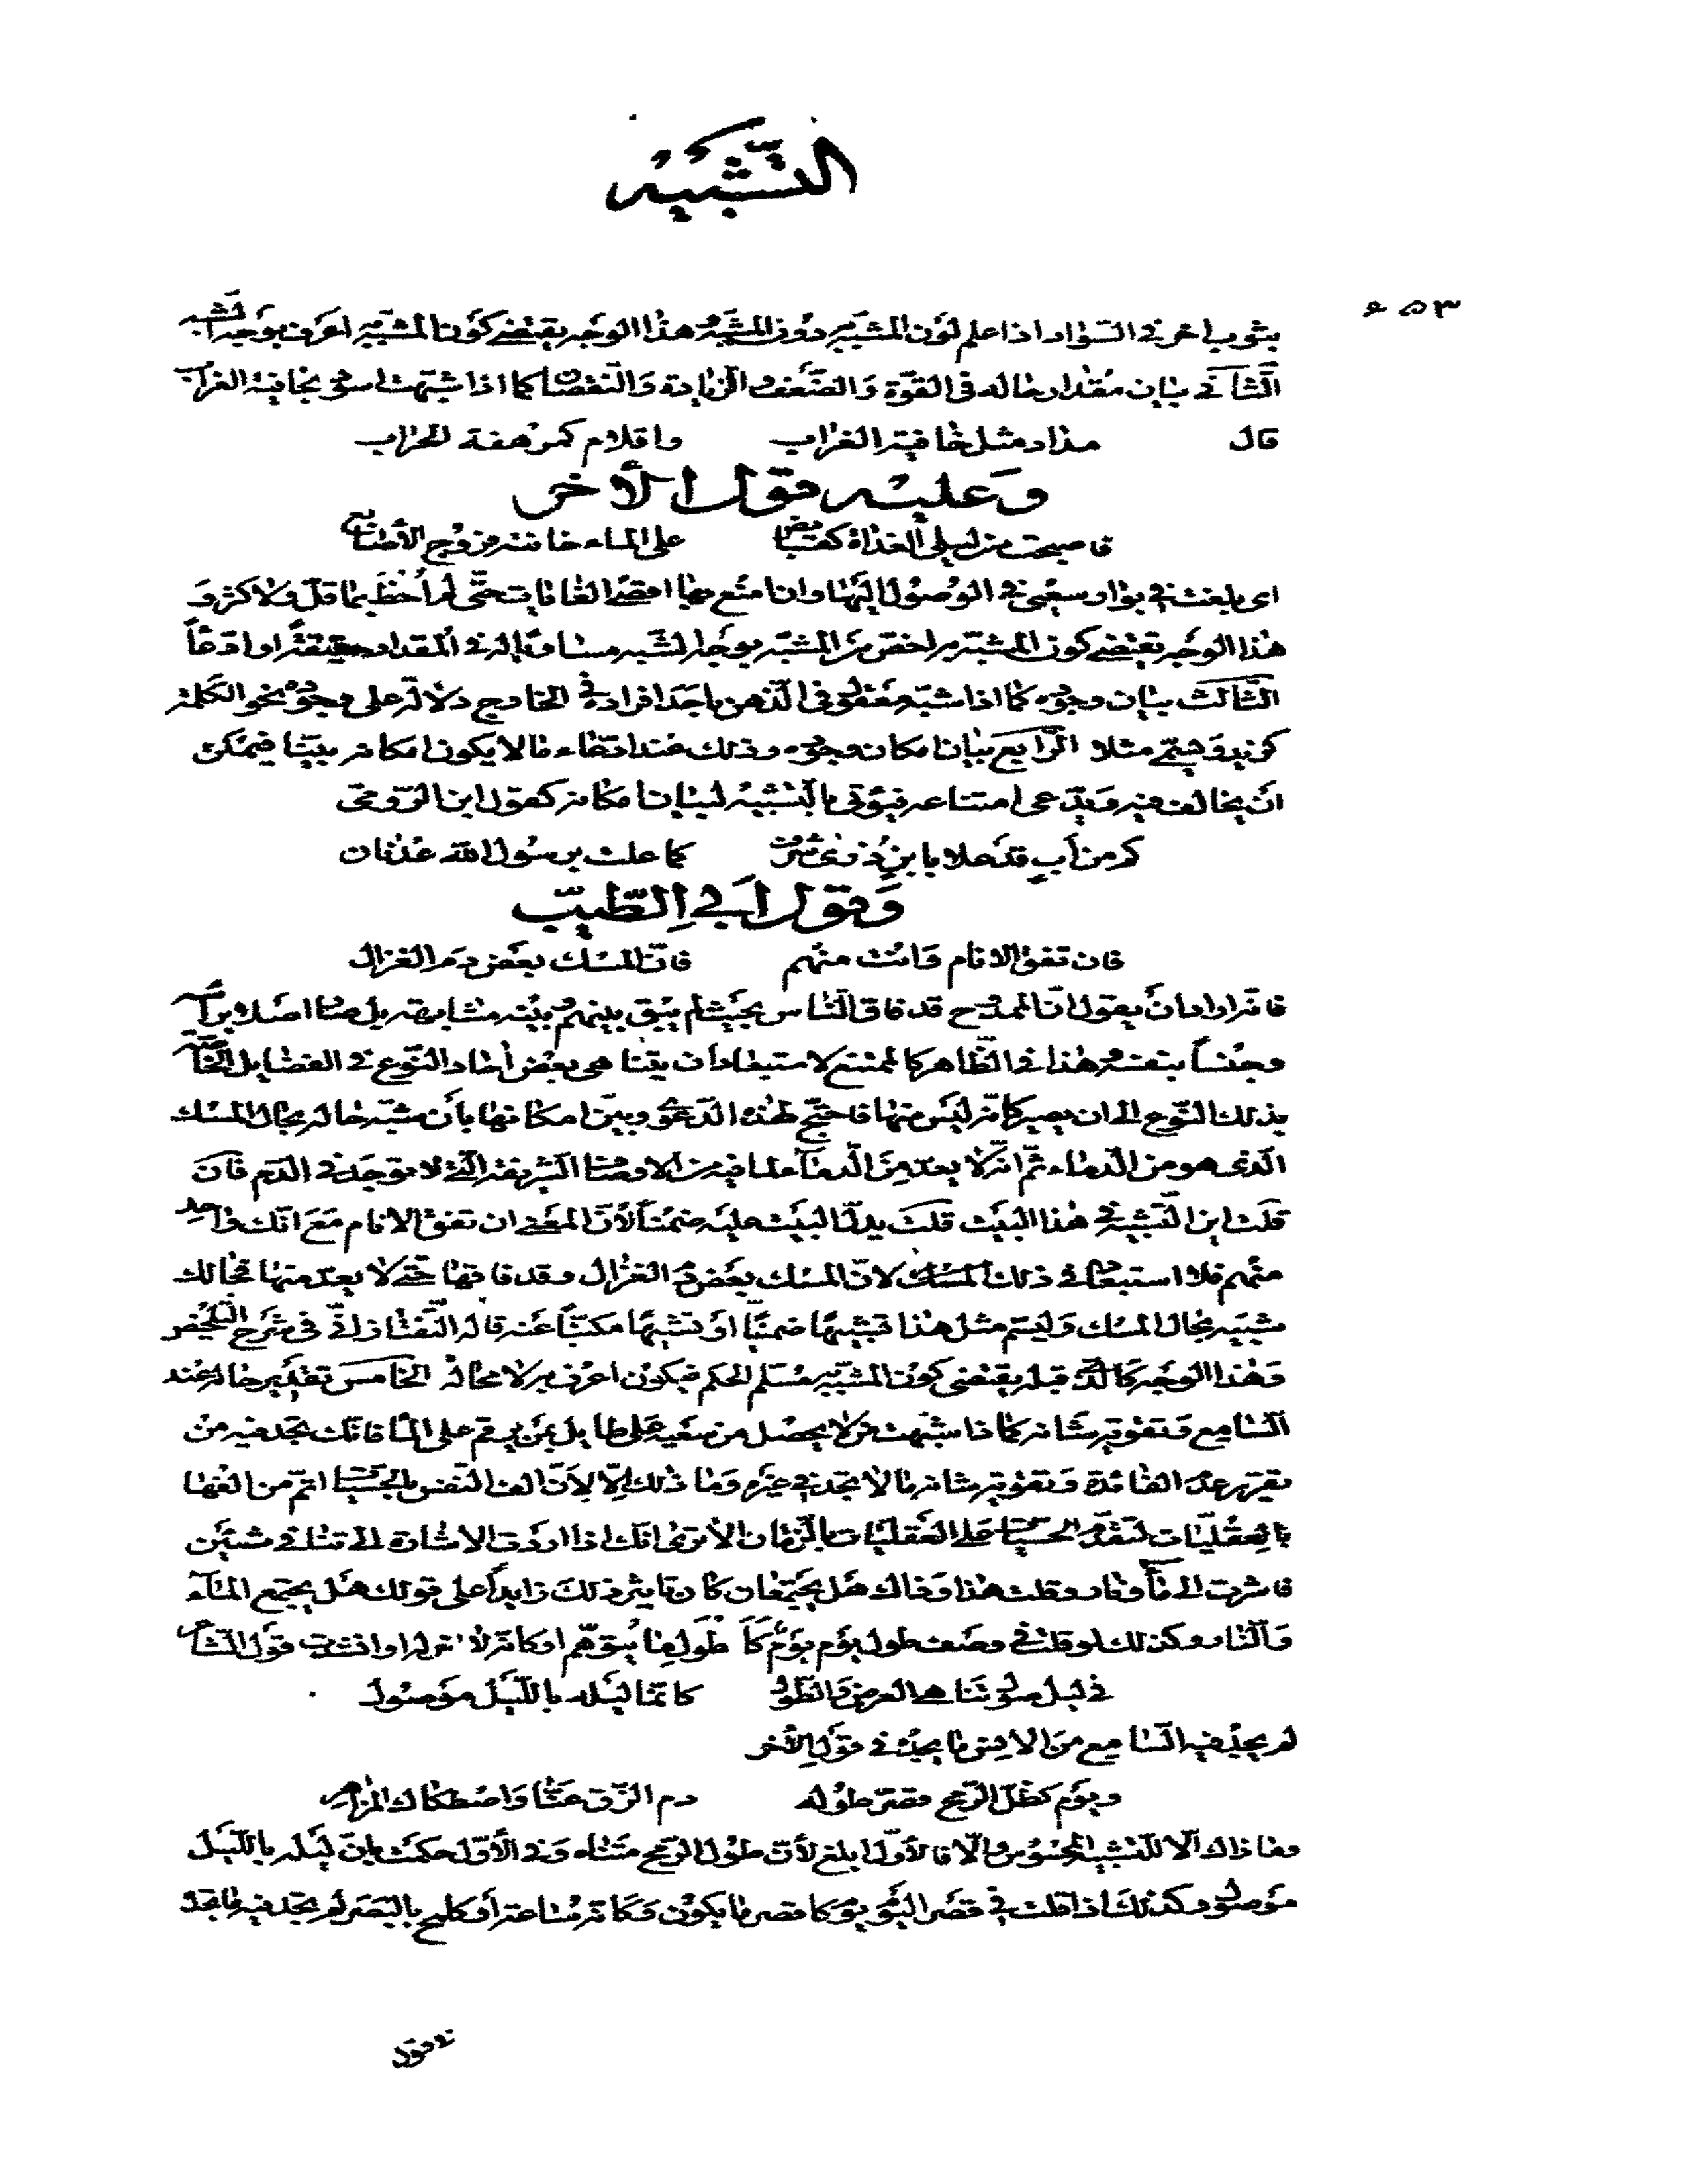 التشبيه
بثوب اخر في السواد اذا علم لون المشبه به دون المشبه وهذا الوجه يقتضي كون المشبه به اعرف بوجه الشبه
الثاني بيان مقدار حاله في القوة والضعف والزيادة والنقصان كما اذا شبهت اسود بخافية الغراب
قال مداد مثل خافية الغراب واقلام كمرهفة الحراب
وعليه قول الأخر
فاصبحت من ليلى الغداة كقابض على الماء خانته فروج الأصابع
اى بلغت في بوار سعيي في الوصول اليها وان امتع بها اقصى الغايات حتى لم أحظ بما قل ولا كثر و
هذا الوجه يقتضي كون المشبه به اخص من المشبه بوجه الشبه مساويا له في المقدار حقيقة او ادعاءً
الثالث بيان وجوده كما اذا شبه معقول في الذهن باحد افراده في الخارج دلالة على وجوده نحو الكلمة
كزيد وهيثم مثلا الرابع بيان امكان وجوده وذلك عند ادعاء ما لا يكون امكانه بينا فيمكن
ان يخالف فيه ويدعى امتناعه فيؤتى بالتشبيه لبيان امكانه كقول ابن الرومى
كم من أب قد علا بابن ذرى شرف كما علت برسول الله عدنان
وقول أبي الطيب
فان تفق الانام وانت منهم فان المسك بعض دم الغزال
فانه اراد ان يقول ان الممدوح قد فاق الناس بحيث لم يبق بينهم وبينه مشابهة بل صار اصلا برأسه
وجنساً بنفسه وهذا في الظاهر كالممتنع لاستبعاد ان يتناهى بعض احاد النوع في الفضايل الخاصة
بذلك النوع الى ان يصير كانه ليس منها فاحتج لهذه الدعوى وبين امكانها بأن شبه حاله بحال المسك
الذى هو من الدماء ثم انه لا يعد من الدماء لما فيه من الاوصاف الشريفة التي لا توجد في الدم فان
قلت اين التشبيه في هذا البيت قلت يدل البيت عليه ضمناً لأن المعنى ان تفق الانام مع انك واحد
منهم فلا استبعاد في ذلك لان المسك بعض دم الغزال وقد فاقها حتى لا يعد منها فحالك
شبيه بحال المسك وليسم مثل هذا تشبيها ضمنيا او تشبيها مكنيا عنه قاله التفتازاني في شرح التلخيص
وهذا الوجه كالذي قبله يقتضى كون المشبه به مسلم الحكم فيكون اعرف به لا محالة الخامس تقرير حاله عند
السامع وتقوية شانه كما اذا شبهت من لا يحصل من سعيه على طايل بمن يرقم على الماء فانك تجد فيه من
تقرير عدم الفائدة وتقوية شانه ما لا تجده في غيره وما ذلك الا لأن الف النفس بالحسيات اتم من الفها
بالعقليات لتقدم الحسيات على العقليات بالزمان الا ترى انك اذا اردت الاشارة الى تنافي شيئين
فاشرت الى ماء ونار وقلت هذا وذاك هل يجتمعان كان تاثير ذلك زايداً على قولك هل يجتمع الماء
والنار وكذلك لو قلت في وصف طول يوم يوم كاطول ما يتوهم او كانه لا اخر له او انشدت قول الشاعر
في ليل صول تناهى العرض والطول كانما ليله بالليل موصول
لم يجد فيه السامع من الانس ما يجده في قول الأخر
ويوم كظل الرمح قصر طوله دم الزق عنا واصطكاك المزاهر
وما ذاك الا للتشبيه بالمحسوس والا فالأول ابلغ لأن طول الرمح متناه وفي الأول حكمت بان ليله بالليل
موصول وكذلك اذا قلت في قصر اليوم يوم كاقصر ما يكون وكانه ساعة أو كلمح بالبصر لم تجد فيه ما تجد